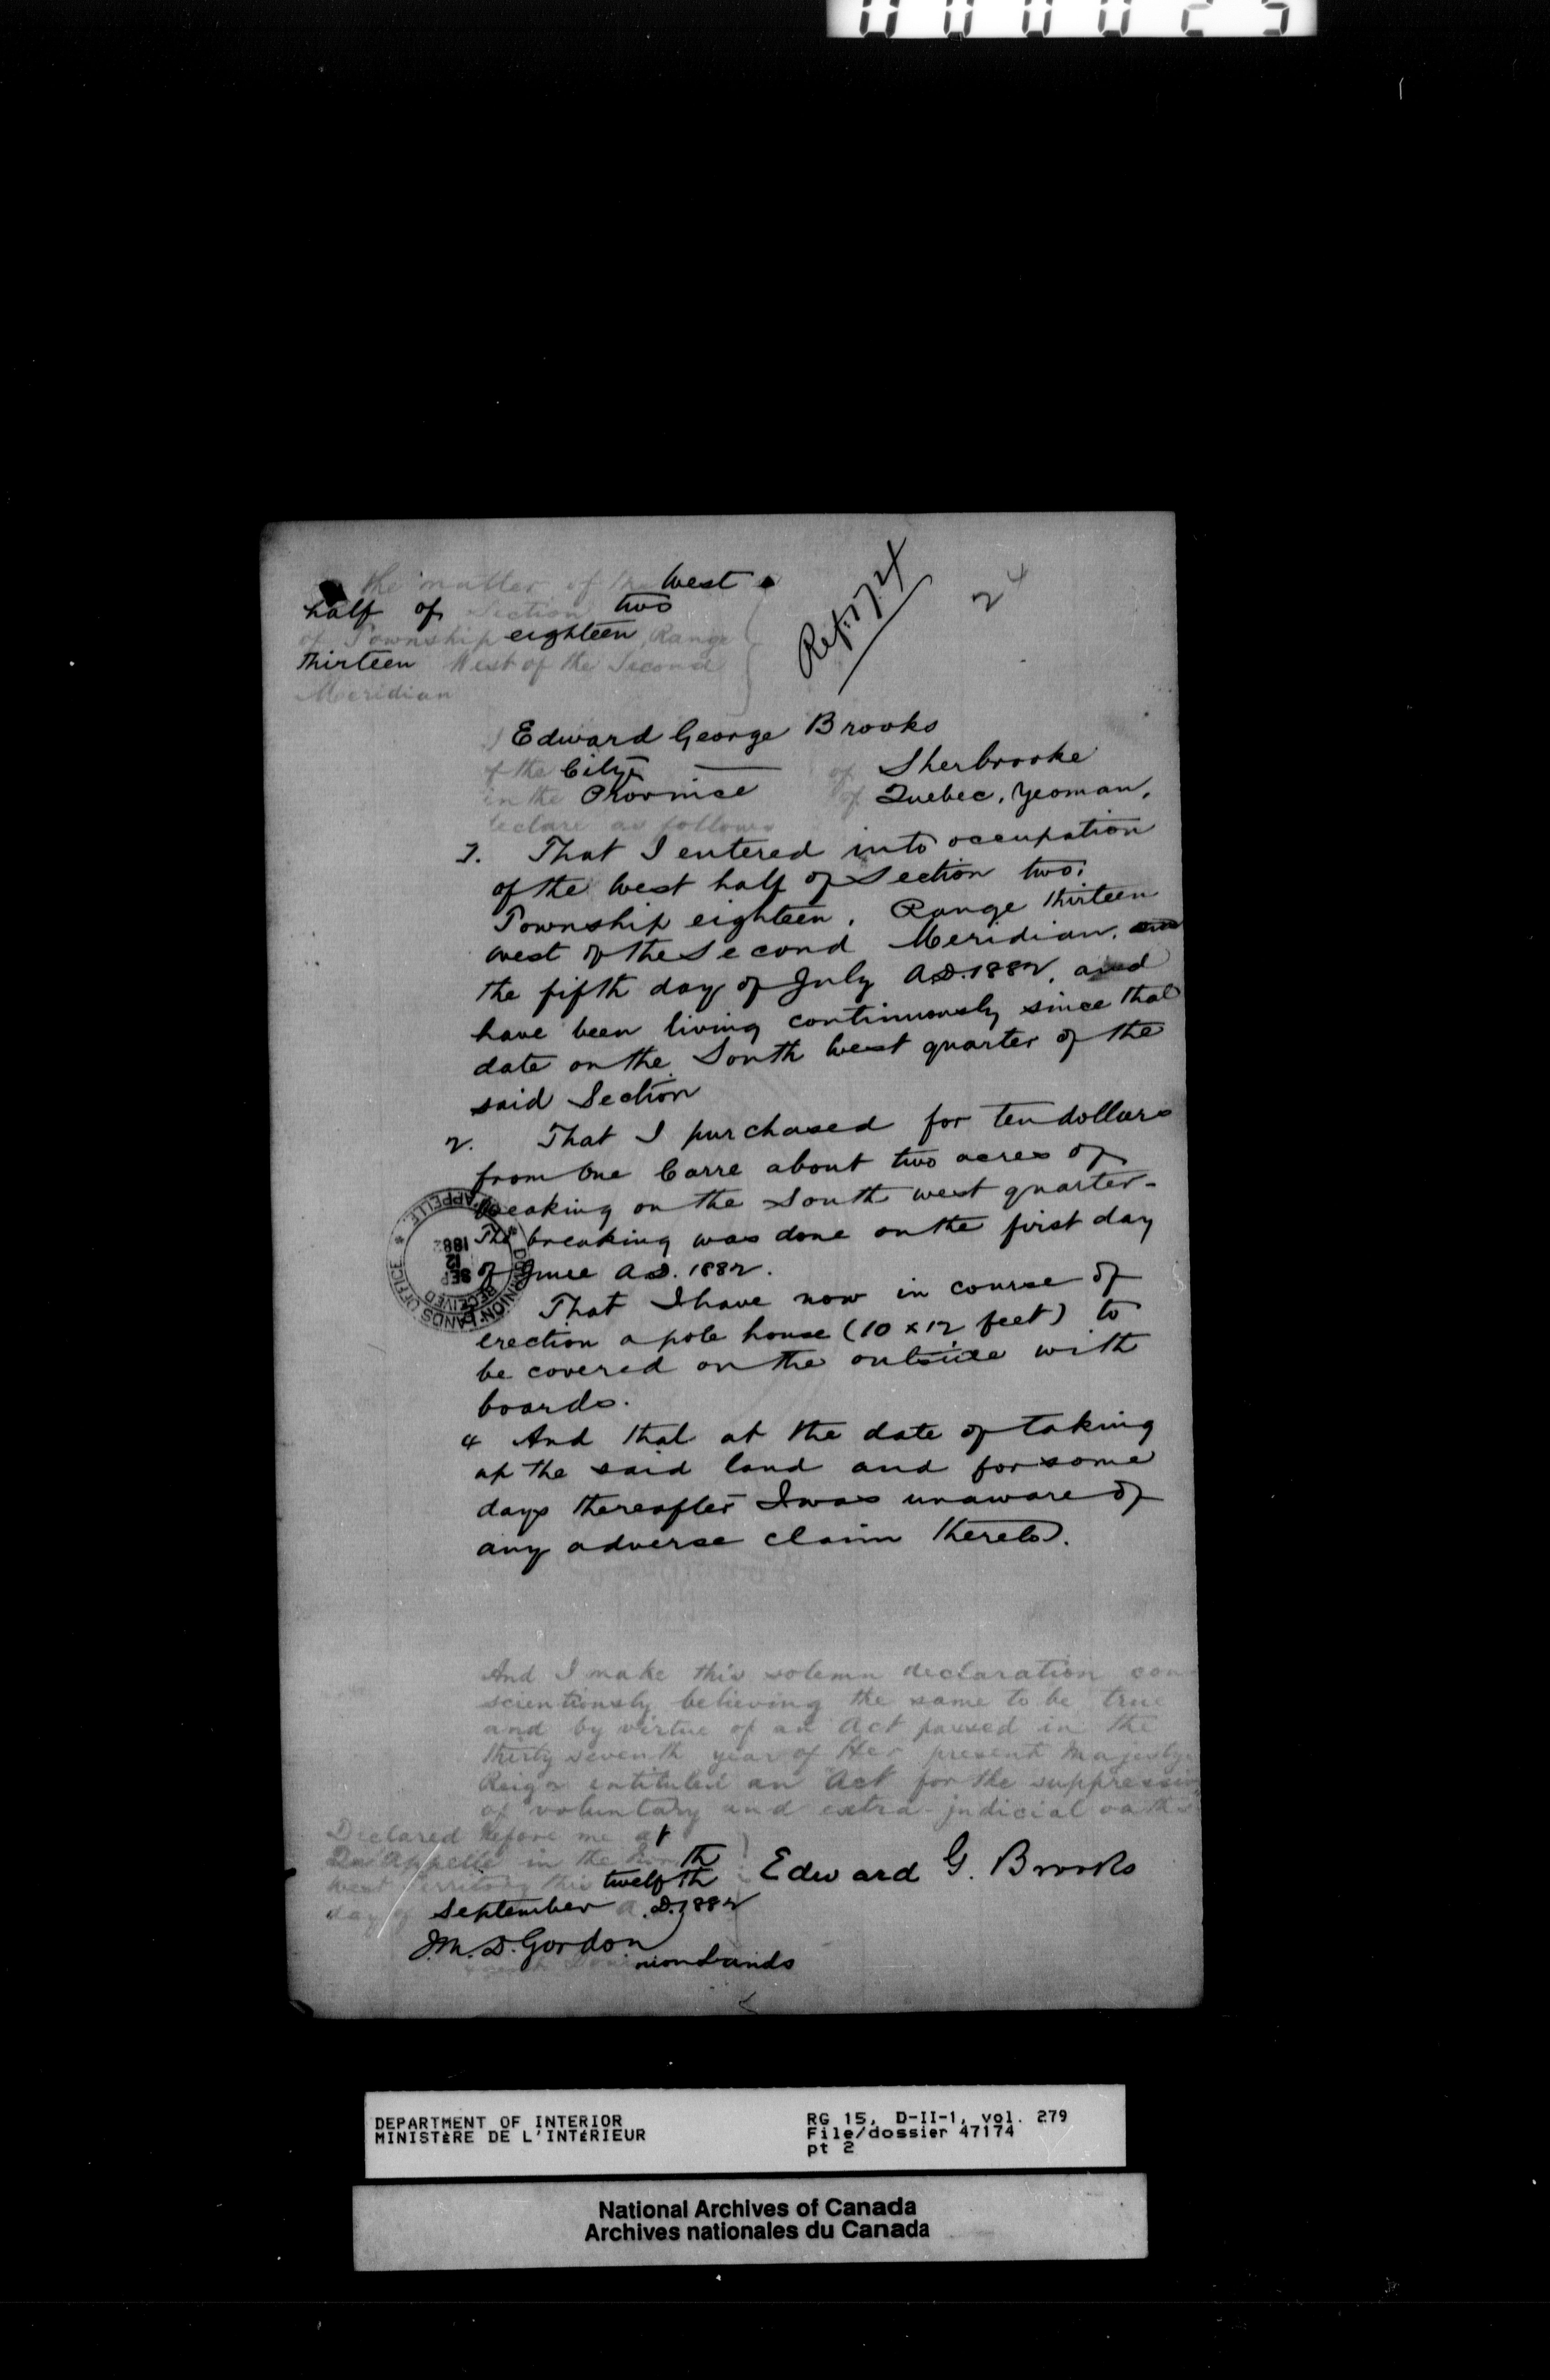 000025
the matter of the West
half of Section two
of Township eighteen, Range
Thirteen West of the Second
Meridian
Ref: 17.24
24
I Edward George Brooks
of the City of Sherbrooke
in the Province of Quebec, Yeoman,
declare as follows
1. That I entered into occupation
of the West half of Section two;
Township eighteen, Range Thirteen
West of the Second Meridian,
the fifth day of July A.D. 1882, and
have been living continuously since that
date on the South West quarter of the
said Section
2. That I purchased for ten dollars
from One Carre about two acres of
breaking on the South west quarter-
The breaking was done on the first day
of June A.D. 1882.
That I have now in course of
erection a pole house (10 x 12 feet) to
be covered on the outside with
boards.
4 And that at the date of taking
up the said land and for some
days thereafter I was unaware of
any adverse claim thereto.
DOMINION LANDS OFFICE * QU'APPELLE *
RECEIVED
SEP
12
1882
And I make this solemn declaration con
scientiously believing the same to be true
and by virtue of an Act passed in the
thirty seventh year of Her present Majesty's
Reign entituled an "Act for the suppression
of voluntary and extra-judicial oaths
Declared before me at
Qu'Appelle in the North
West Territory this twelfth
day of September A.D. 1882
Edward G. Brooks
J.M. D. Gordon
Dominion Lands
DEPARTMENT OF INTERIOR
MINISTÈRE DE L'INTÉRIEUR
RG 15, D-II-1, vol. 279
File/dossier 47174
pt 2
National Archives of Canada
Archives nationales du Canada